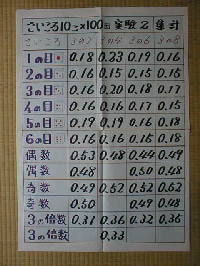 さいころ10コ×100回 実験2 集計
さいころ
1の目 0.18 0.23 0.19 0.16
2の目 0.16 0.15 0.15 0.15
3の目 0.16 0.18 0.17
4の目 0.16 0.16 0.17 0.15
5の目 0.19 0.19 0.16 0.18
6の目 0.16 0.16 0.15 0.18
偶数 0.53 0.48 0.44 0.49
偶数 0.48 0.50 0.48
奇数 0.49 0.52 0.52 0.52
奇数 0.50 0.49 0.48
3の倍数 0.31 0.36 0.32 0.36
3の倍数 0.33